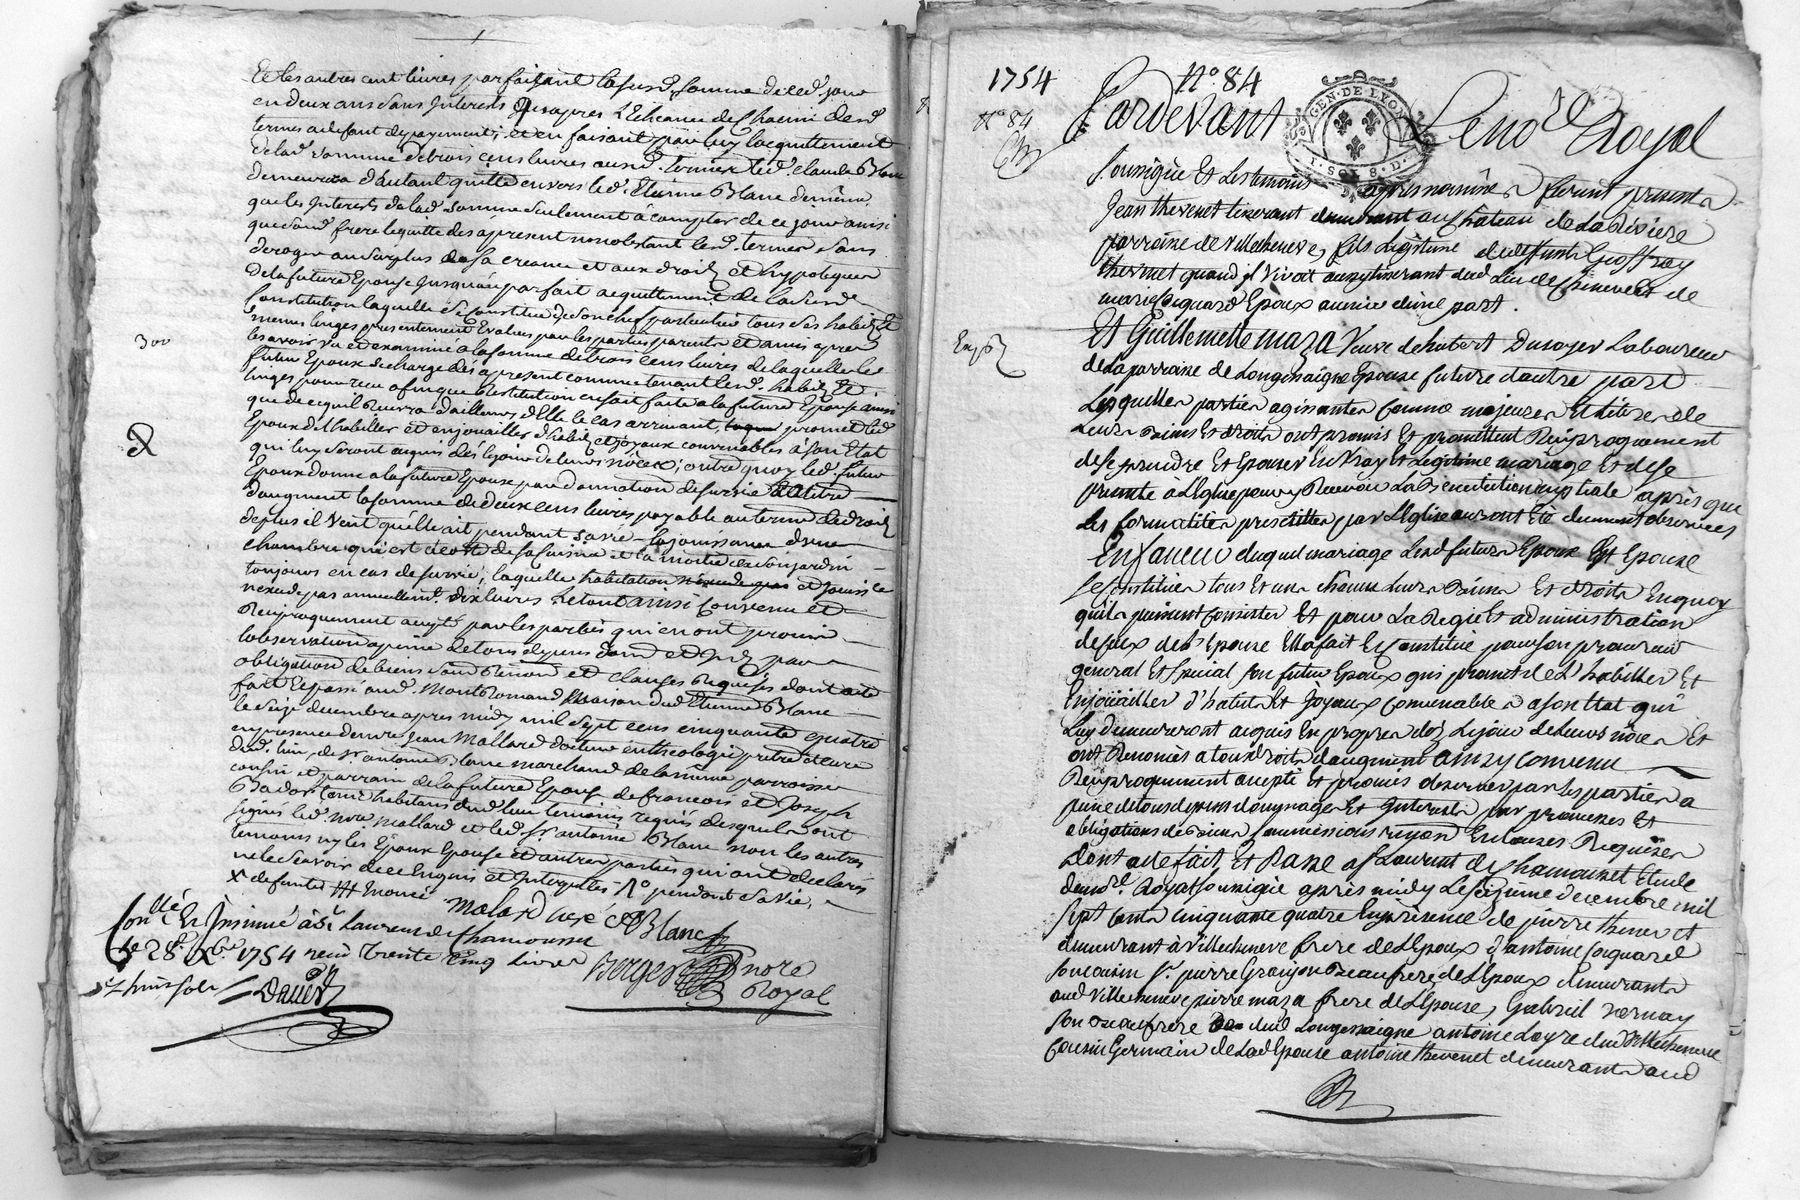 Et les autres cent livres parfaisant lasusd. somme de ced. jour
en deux ans sans Interests qu'apres L'Echeance de Chacun desd.
termes a defaut de payement; et en faisant par luy lacquittement
de lad. somme de trois cens livres aud. led. claude Blanc
demeurera d'autant quitte envers led. Etienne Blanc de même
que les Interests de lad. somme seulement à compter de ce jour ainsi
que sond. frere le quitte des apresent nonobstant lesd. termes sans
deroger au surplus de sa creance et aux droits et hypoteques
de la future Epouse jusqu'au parfait acquittement de lad.
Constitution laquelle se constitue de son chef particulier tous ses habits et
menus linges presentement Evalués par les parties parents et amis apres
les avoir vu et examiné a la somme de trois cens livres de laquelle le
300
futur Epoux se charge dés apresent comme tenant lesd. habits et
linges pour reçu afin que Restitution en soit faite a la future Epouse ainsi
que de ce qu'il Recevra d'ailleurs d'Elle le cas arrivant, promet led.
Epoux d'habiller et enjouailler d'habits et joyaux convenables à son Etat
qui luy seront acquis dés le jour de leurs nôces; outre quoy led. futur
Epoux donne a la future Epouse par donnation de survie et a titre
daugment la somme de deux cens livres payable au terme de droit
de plus il veut qu'elle ait pendant sa vie la jouissance d'une
chambre qui est de coté de sa cuisine et la moitié de son jardin
toujours en cas de survie; laquelle habitation et jouissance
n'excede pas annuellement dix livres. Le tout ainsi Convenu et
Reciproquement accepté par les parties qui en ont promis
l'observation a peine de tous depens dom. et Int. par
obligation de biens sous Renon. et clauses Requises dont acte
fait et passé aud. Montromand Maison dud. Etienne Blanc
le seize decembre apres midy mil sept cens cinquante quatre
en presence de mre Jean Mallard docteur en theologie pretre et curé
dud. lieu, de sr. antoine Blanc marchand de la même parroisse
cousin et parrain de la future Epouse de francois et Joseph
habitans dud. lieu temoins requis desquels ont
signés led. mre Mallard et led. sr. antoine Blanc non les autres
temoins ny les Epoux Epouse et autres parties qui ont declarés
ne le sçavoir de ce Enquis et Interpellés
Malard curé Blanc
Conllé Et Insinué à St Laurens de Chamousset
le 28e Xbre 1754 reçu Trente Cinq Livres
Berger nore Royal
1754
No 84
No 84
GEN. DE LYON
1. SOL 8. D.
Pardevant Le no.re Royal
soussigné Et Les temoins apres nommés furent presents
Jean thevenet tixerant demeurant au Château de La Riviere
parroisse de Villecheneve, fils Legitime de deffunts Geoffray
thevenet quand il Vivoit aussy tixerant dud. Lieu de Cheneveit de
marie Coquard Epoux avenir d'une part.
Et Guillemette maza Veuve de hubert Dunoyer Laboureur
de La parroisse de Longessaigne Epouse future d'autre part
Lesquelles parties agissantes Comme majeures Et Libres de
Leurs biens Et droits ont promis Et promettent Reciproquement
de se prendre Et Epouser En Vray Et Legitime mariage Et de se
presenter à L'Eglise pour y Recevoir La Benediction nuptiale après que
Les formalités prescrittes par L'Eglise auront Eté duement observées
En faveur duquel mariage Lesd. futurs Epoux Et Epouse
se Constitués tous Et uns chacuns Leurs biens Et droits En quoy
qu'ils puissent Consister Et pour La Regie Et administration
de ceux de L'Epouse Elle a fait Et Constitué pour son procureur
general Et special son futur Epoux qui promet de L'habiller Et
Enjouailler d'habits Et Joyaux Convenables a son Etat qui
Luy demeureront acquis En propres dés Le jour de Leurs nôces Et
ont Renoncés a tous droits daugment ainsy convenu
Reciproquement accepté Et promis d'observer par Les parties a
peine de tous depens domages Et Interests par promesses Et
obligations de biens soumissions renon. Et Clauses Requises
Dont acte fait Et Passé a St Laurent de Chamousset Etude
du no.re Royal soussigné après midy Le seizieme decembre mil
sept Cents Cinquante quatre En presence de pierre thevenet
demeurant à Villecheneve frere de L'Epoux d'antoine Coquard
son cousin Sr. pierre Granjon Beaufrere de L'Epoux demeurants
aud Villecheneve pierre maza frere de L'Epouse, Gabriel Vernay
son Beaufrere dud Longessaigne antoine Loyre dud Villecheneve
Cousin Germain de Lad Epouse antoine thevenet demeurants aud